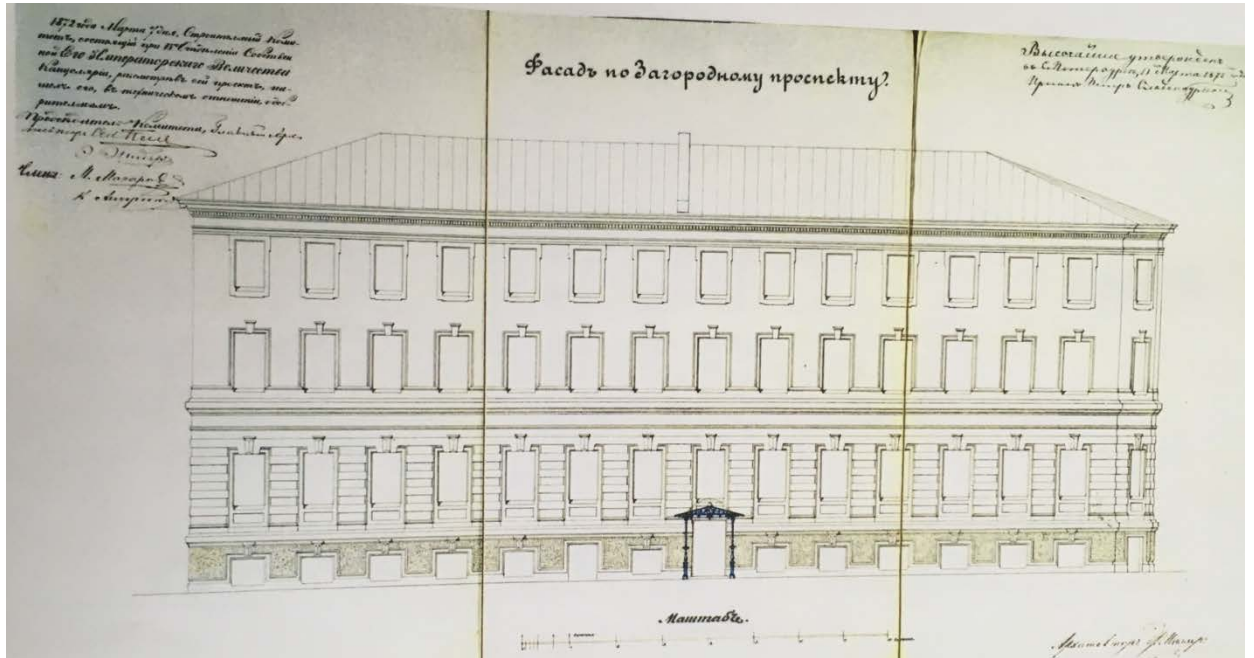 1872 года Марта 7 дня, Строительный Коми-
тетъ, состоящій при IV Отдѣленіи Собствен
ной Его Императорскаго Величества
Канцеляріи, разсмотрѣвъ сей проектъ, на-
шелъ его, въ техническомъ отношеніи, одоб-
рительнымъ.
Предсѣдатель Комитета, Главный Архи-
Члены: М. Макаровъ
К.
Фасадъ по Загородному проспекту.
Высочайше утвержденъ
въ С. Петербургѣ, 11 Марта 1872 года
Принцъ Петръ Ольденбургскій
Маштабъ.
Архитекторъ